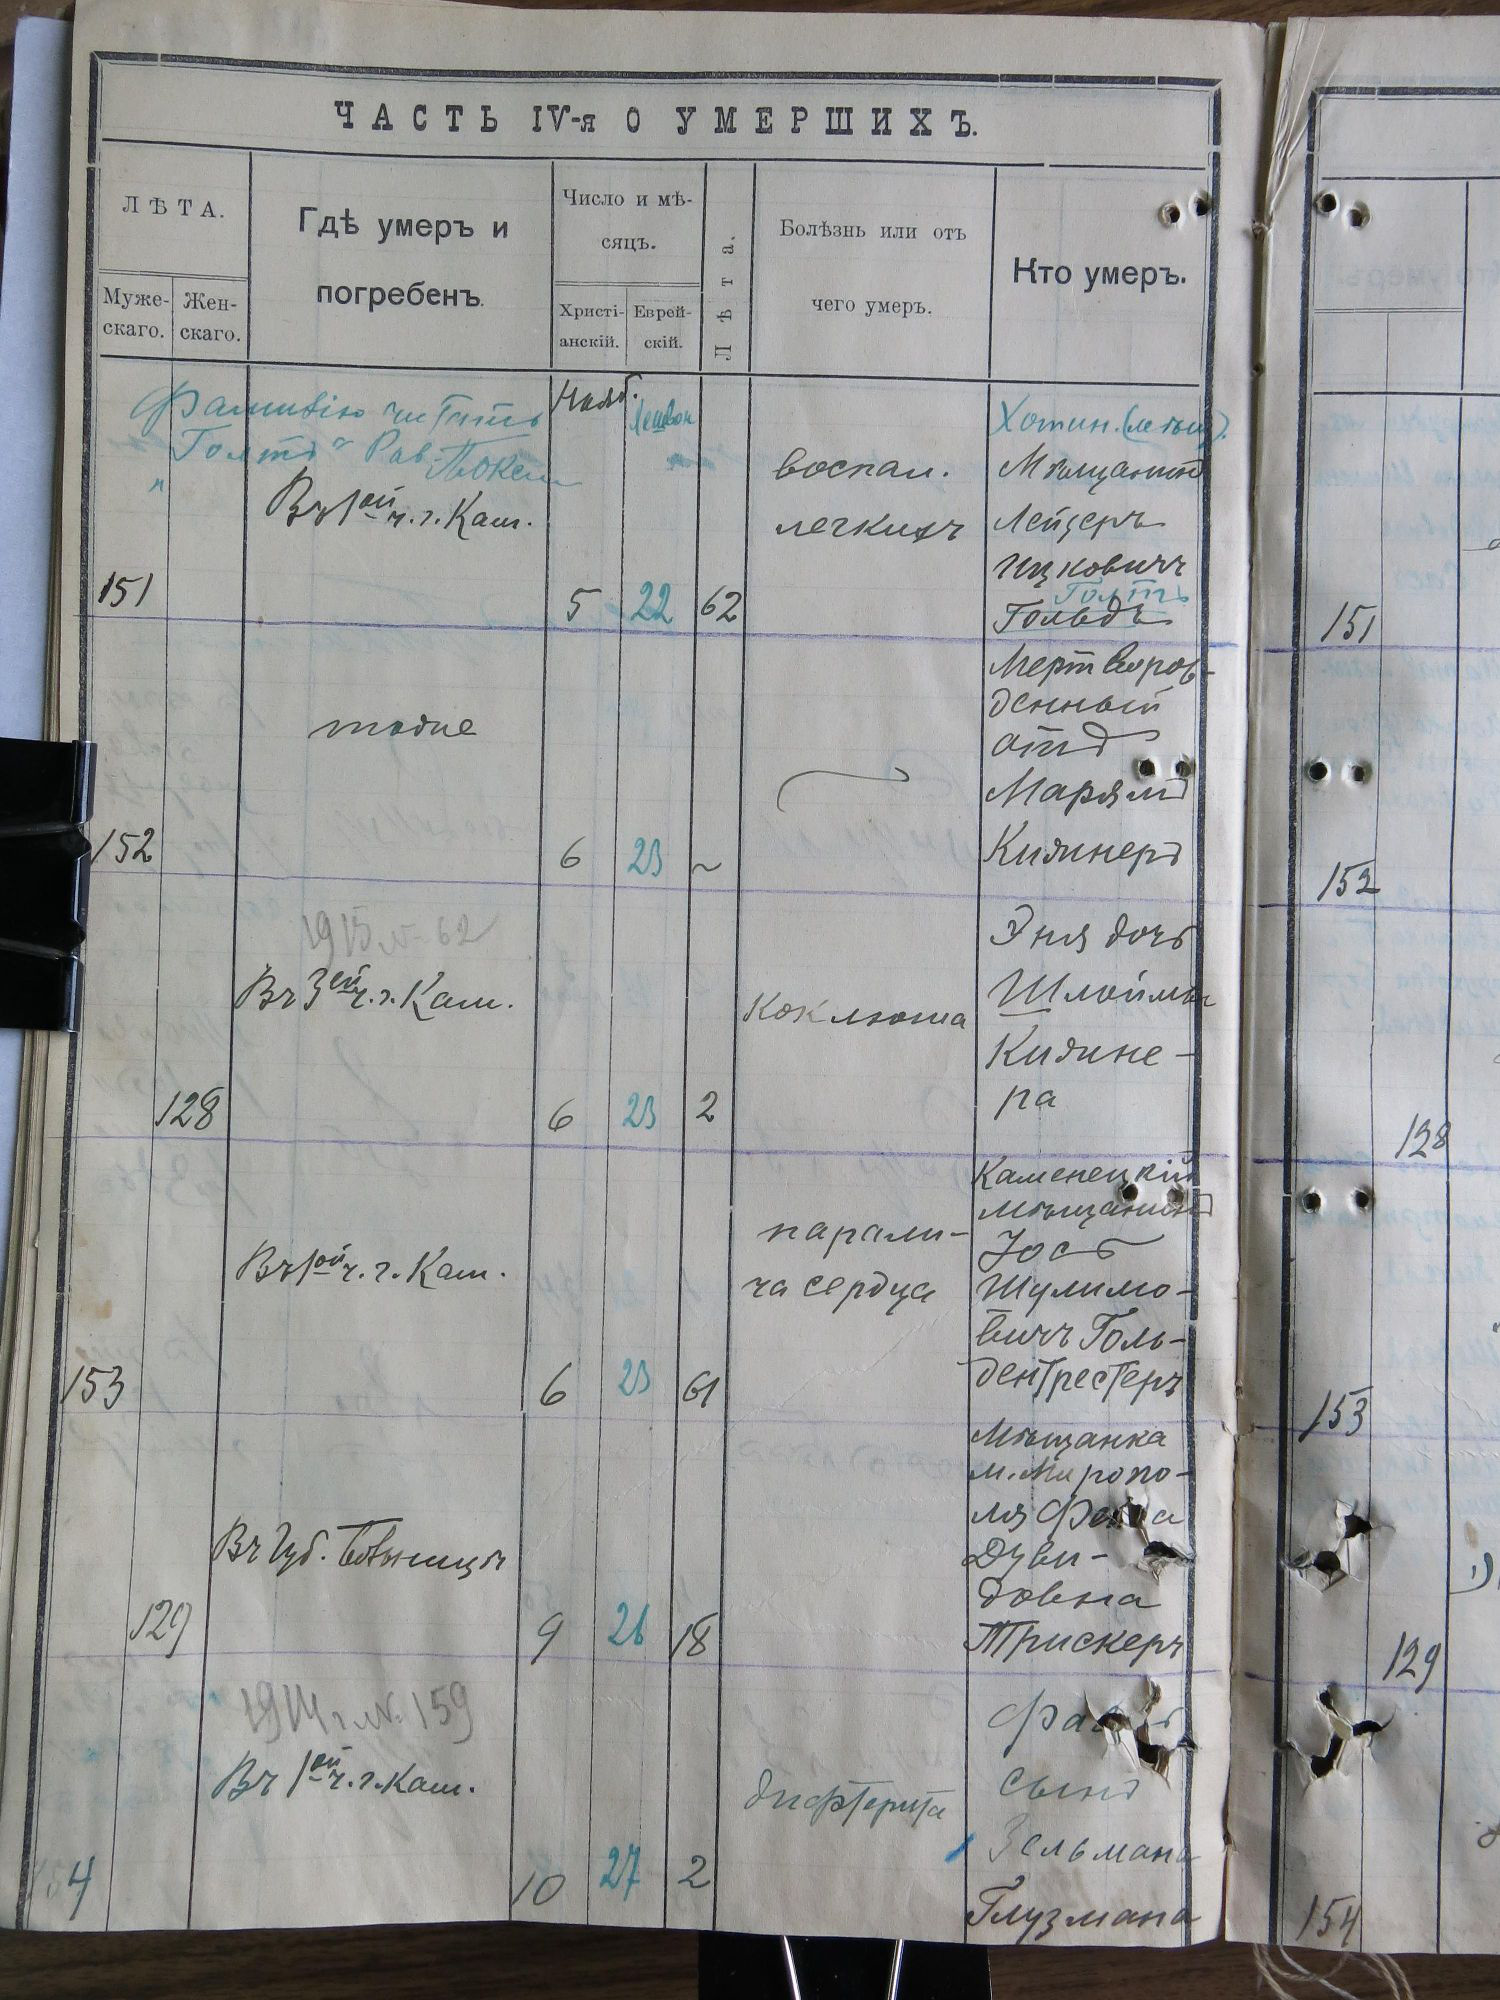 ЧАСТЬ IV-я О УМЕРШИХЪ.
ЛѢТА.
Муже-
скаго.
Жен-
скаго.
Гдѣ умеръ и
погребенъ.
Число и мѣ-
сяцъ.
Христі-
анскій.
Еврей-
скій.
Лѣта.
Болѣзнь или отъ
чего умеръ.
Кто умеръ.
Фамилію читать
Гольтъ
Нояб.
Хешвон
Въ 1ой ч. г. Кам.
151
5
22
62
воспал.
легкихъ
Хотин.
Мѣщанинъ
Лейзеръ
Ицковичъ
Гольтъ
Гольдъ
тоже
152
6
23
~
Мертворож-
денный
отъ
Марьямъ
Кижнеръ
1915 № 62
Въ 3ей ч. г. Кам.
128
6
23
2
коклюша
Эня дочь
Шлоймы
Кижне-
ра
Въ 1ой ч. г. Кам.
153
6
23
61
парали-
ча сердца
Каменецкій
мѣщанинъ
Іось
Шулимо-
вичъ Голь-
дентрестеръ
Въ Губ. больницѣ
129
9
26
18
Мѣщанка
м. Миропо-
ля
Дуви-
довна
Трискеръ
1914 г. №. 159
Въ 1ей ч. г. Кам.
154
10
27
2
дифтерита
сынъ
Зельмана
Глузмана
151
152
128
153
129
154